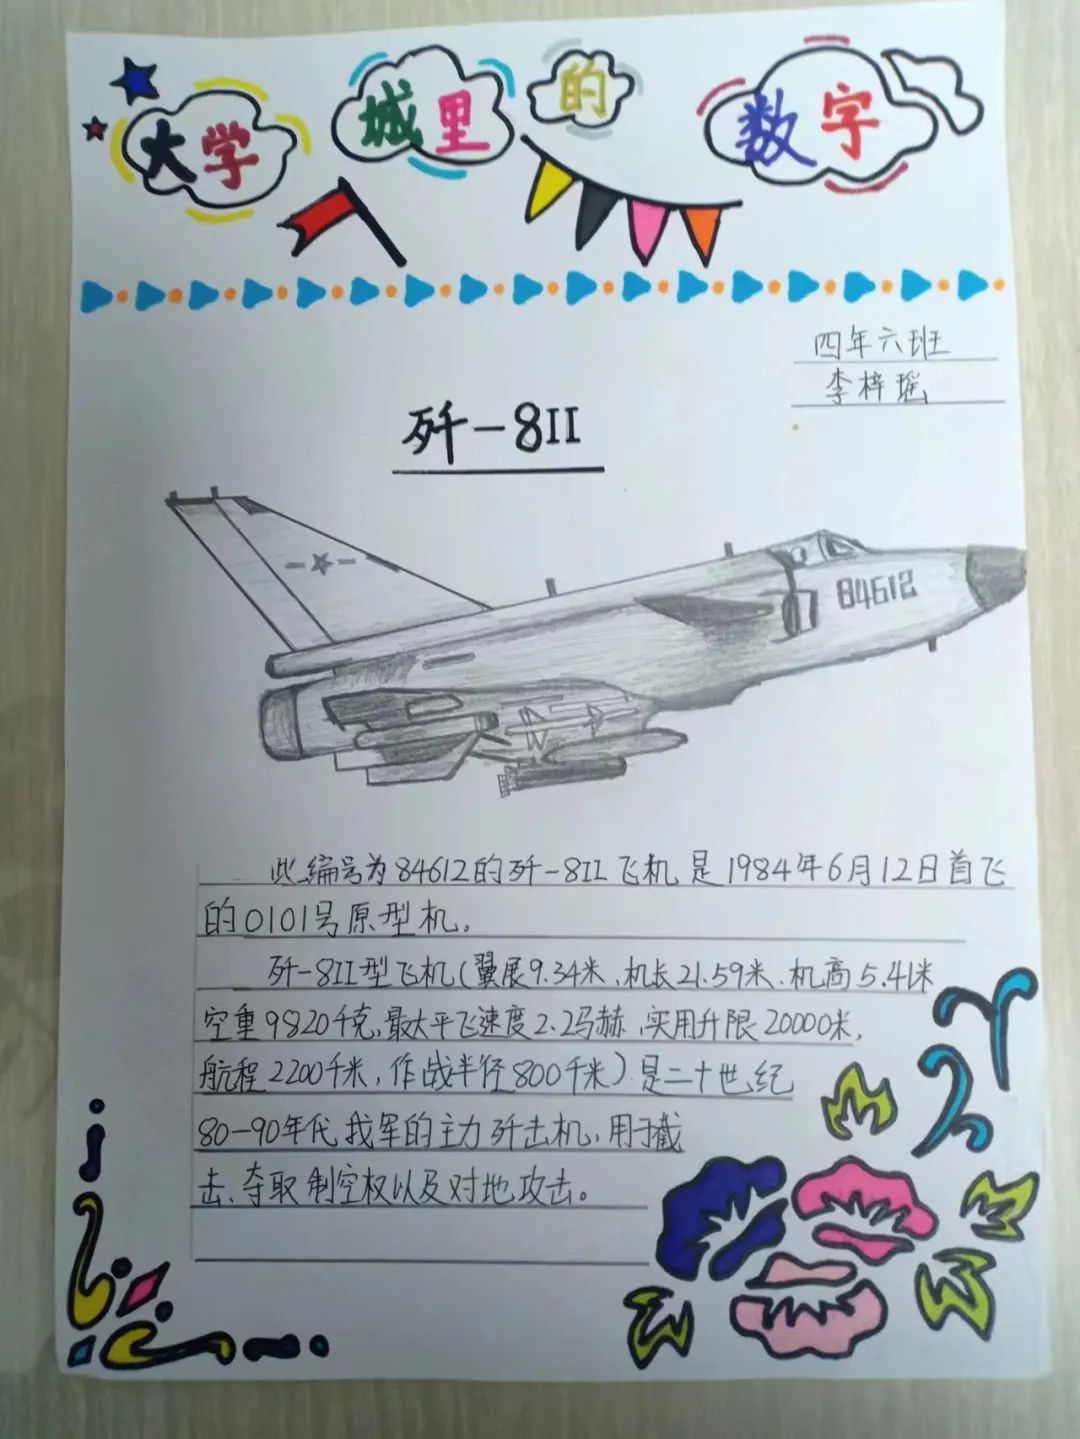 大学城里的数字
四年六班
李梓瑶
歼-8II
84612
此编号为84612的歼-8II飞机是1984年6月12日首飞
的0101号原型机。
歼-8II型飞机(翼展9.34米、机长21.59米、机高5.41米
空重9820千克,最大平飞速度2.2马赫,实用升限20000米,
航程2200千米,作战半径800千米)是二十世纪
80-90年代我军的主力歼击机,用于截
击、夺取制空权以及对地攻击。